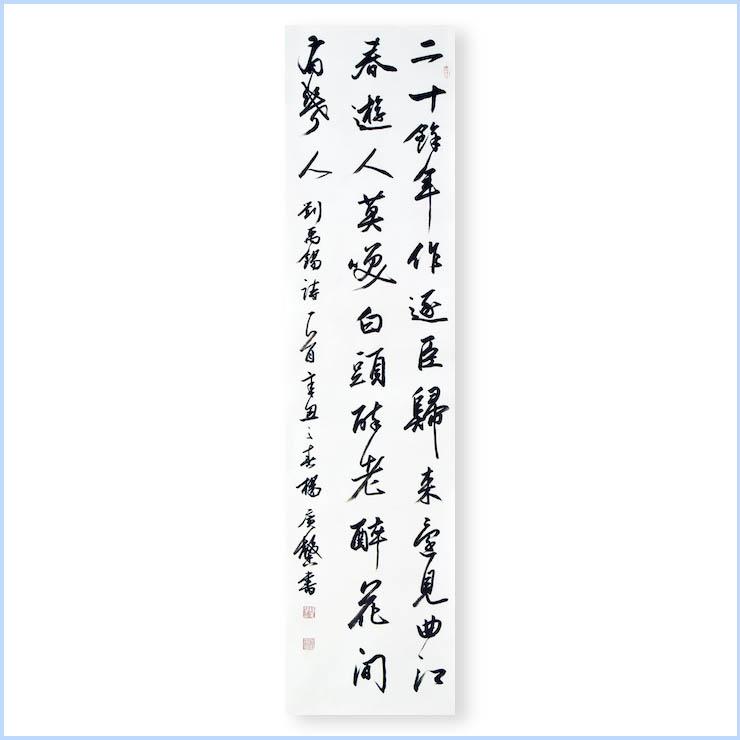 二十餘年作逐臣歸來還見曲江
春遊人莫咲白頭酔老醉花間
有幾人 劉禹錫詩一首 辛丑之春 楊廣馨書